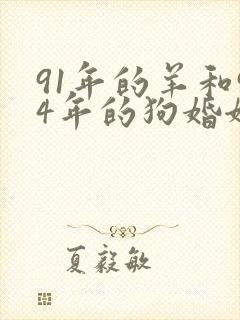 91年的羊和9
4年的狗婚姻
夏毅敏